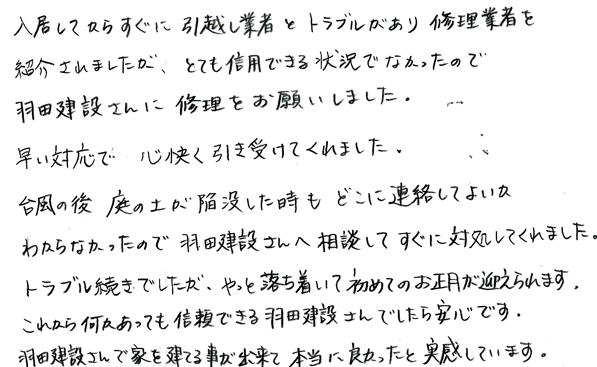 入居してからすぐに 引越し業者とトラブルがあり 修理業者を
紹介されましたが、とても信用できる状況でなかったので
羽田建設さんに 修理をお願いしました。
早い対応で 心快く引き受けてくれました。
台風の後 庭の土が陥没した時も どこに連絡してよいか
わからなかったので 羽田建設さんへ 相談して すぐに対処してくれました。
トラブル続きでしたが、やっと落ち着いて 初めてのお正月が迎えられます。
これから何かあっても 信頼できる 羽田建設さんでしたら安心です。
羽田建設さんで家を建てる事が出来て 本当に良かったと 実感しています。